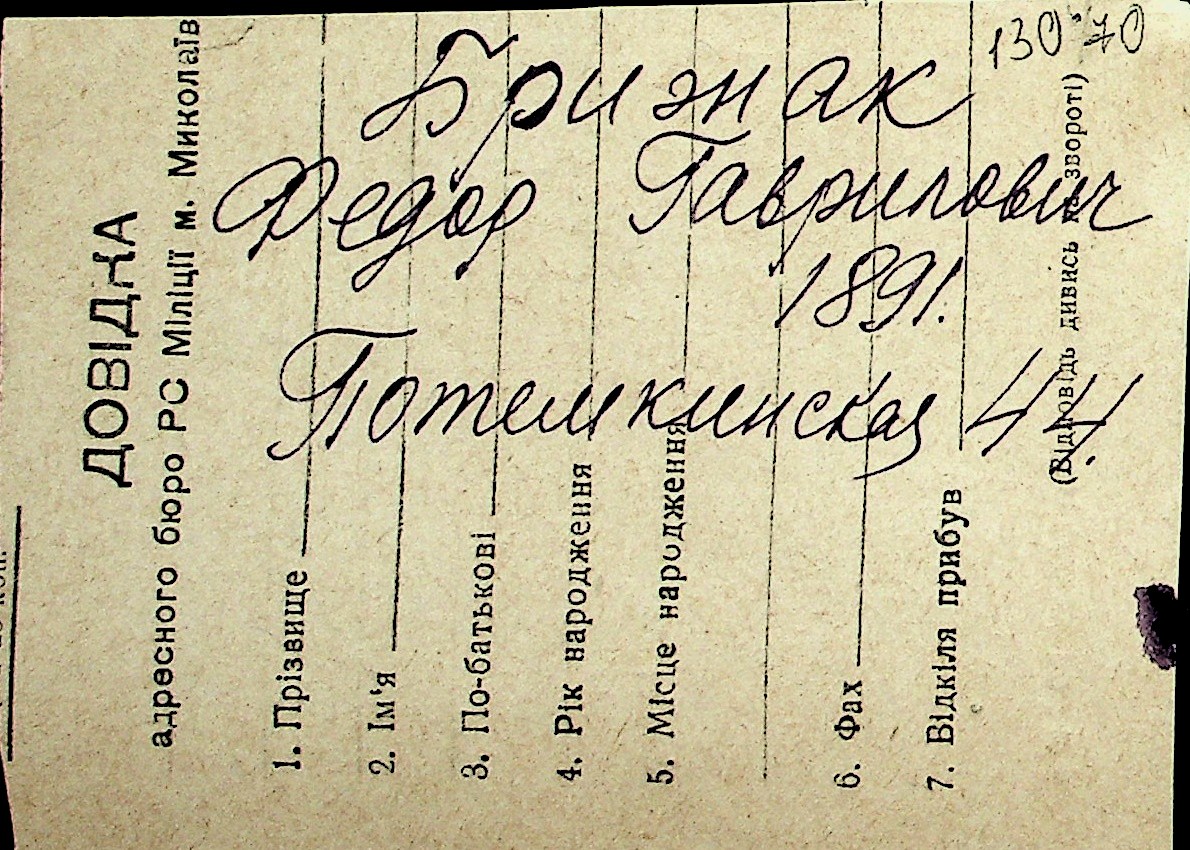 130-70
Бризнак
Федор Гаврилович
1891.
Потемкинская 44
ДОВІДКА
адресного бюро РС Міліції м. Миколаїв
1. Прізвище
2. Ім'я
3. По-батькові
4. Рік народження
5. Місце народження
6. Фах
7. Відкіля прибув
(Відповідь дивись на звороті)